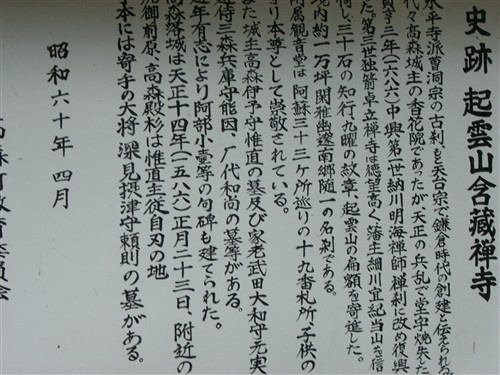 史跡 起雲山含蔵禅寺
永平寺派曹洞宗の古刹、もと天台宗で鎌倉時代の創建と伝えられる。
代々高森城主の香花院であったが天正の兵乱で堂宇焼失した
貞享三年(一六八六)中興第一世納川明海禅師禅刹に改め復興
た。第三世独箭卓立禅寺は徳望高く、藩主細川宣紀当山を信
荷し、三十石の知行、九曜の紋章、起雲山の扁額を寄進した。
境内約一万坪閑雅幽邃南郷随一の名刹である。
附属観音堂は阿蘇三十三ヶ所巡りの十九番札所、子供の
守り本尊として崇敬されている。
また、城主高森伊予守惟直の墓及び家老武田大和守元実
近侍三森兵庫守能因、八代和尚の墓等がある。
近年有志により阿部小壷等の句碑も建てられた。
高森落城は天正十四年(一五八六)正月二十三日、附近の
御前原、高森殿杉は惟直主従自刃の地
本には寄手の大将深見摂津守頼則の墓がある。
昭和六十年四月
高森町教育委員会